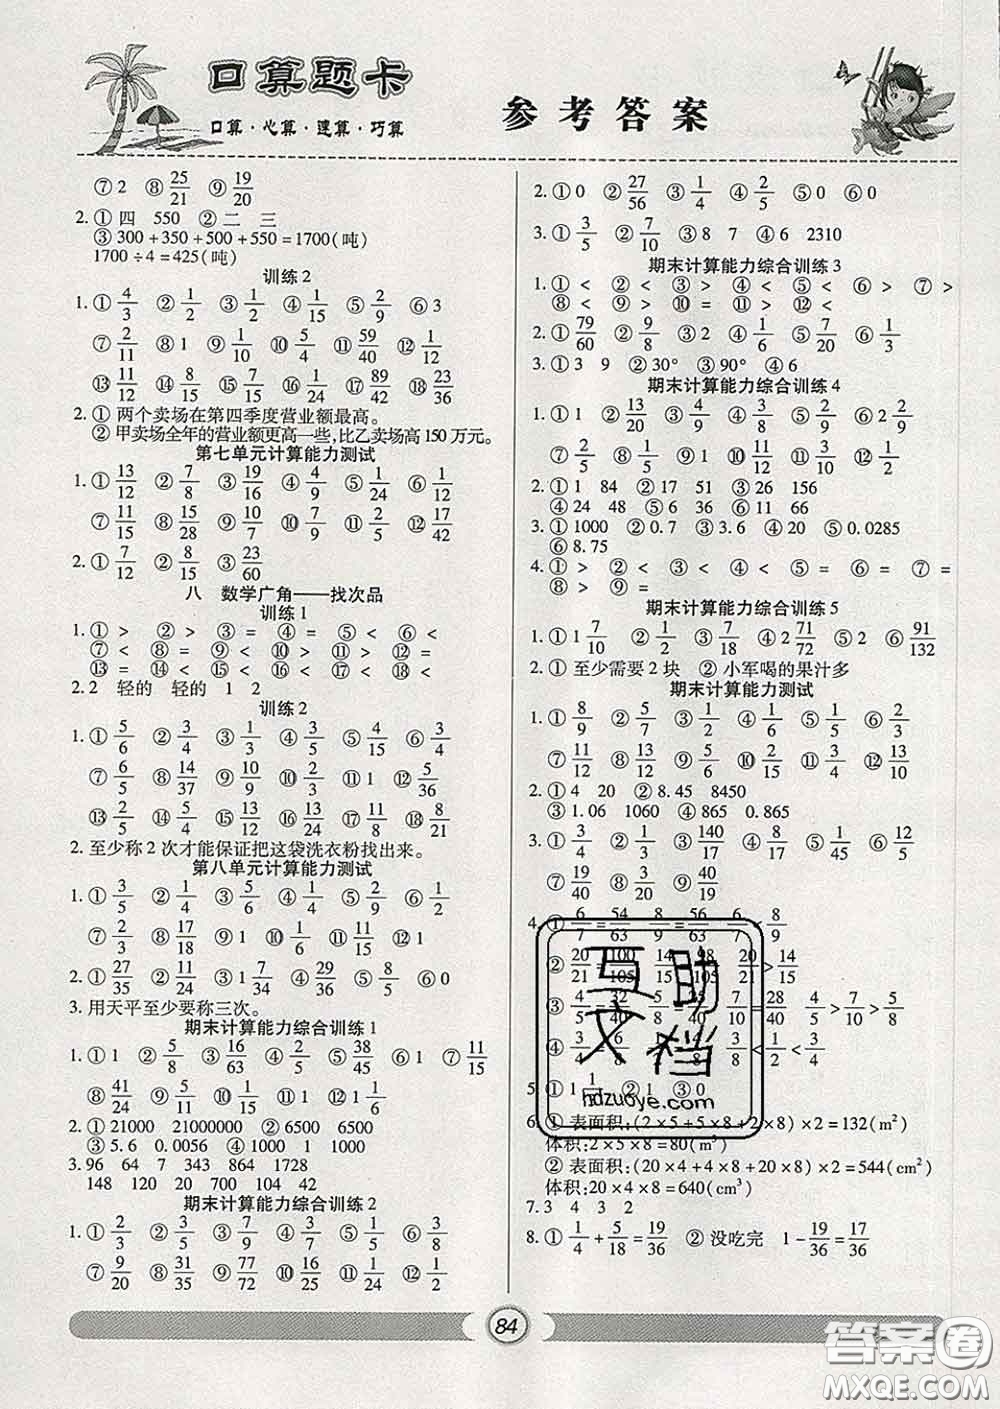 口算题卡
口算·心算·速算·巧算
参考答案
⑦2 ⑧25/21 ⑨19/20
2. ①四 550 ②二 三
③300+350+500+550=1700(吨)
1700÷4=425(吨)
训练2
1. ①4/3 ②1/2 ③1/3 ④1/15 ⑤2/9 ⑥3
⑦2/11 ⑧1 ⑨1/10 ⑩5/4 ⑪59/40 ⑫1/12
⑬11/12 ⑭8/15 ⑮7/15 ⑯1/24 ⑰89/42 ⑱23/36
2. ①两个卖场在第四季度营业额最高。
②甲卖场全年的营业额更高一些,比乙卖场高150万元。
第七单元计算能力测试
1. ①13/12 ②7/8 ③19/16 ④4/9 ⑤1/24 ⑥1/12
⑦11/15 ⑧15/28 ⑨10/9 ⑩7/9 ⑪2/5 ⑫17/42
2. ①7/12 ②8/15 ③23/60
八 数学广角——找次品
训练1
1. ①> ②> ③= ④= ⑤< ⑥<
⑦< ⑧= ⑨< ⑩> ⑪> ⑫=
⑬= ⑭< ⑮> ⑯> ⑰< ⑱<
2. 2 轻的 轻的 1 2
训练2
1. ①5/6 ②3/4 ③1/3 ④4/5 ⑤4/15 ⑥3/4
⑦6/8 ⑧14/37 ⑨9/10 ⑩2/3 ⑪1 ⑫5/36
⑬2/5 ⑭8/15 ⑮1/24 ⑯13/24 ⑰7/8 ⑱8/21
2. 至少称2次才能保证把这袋洗衣粉找出来。
第八单元计算能力测试
1. ①3/5 ②1/4 ③5/6 ④4/5 ⑤2/9 ⑥1/2
⑦2/3 ⑧17/18 ⑨1 ⑩1/6 ⑪13/15 ⑫1
2. ①27/35 ②11/24 ③1 7/34 ④29/36 ⑤6/5 ⑥0
3. 用天平至少要称三次。
期末计算能力综合训练1
1. ①1 ②5/8 ③16/63 ④3/5 ⑤38/45 ⑥1 ⑦11/15
⑧41/24 ⑨5/11 ⑩8/15 ⑪7/9 ⑫5/14
2. ①21000 21000000 ②6500 6500
③5.6 0.0056 ④1000 1 1000
3. 96 64 7 343 864 1728
148 120 20 700 104 42
期末计算能力综合训练2
1. ①2/3 ②3/2 ③7/9 ④3/7 ⑤6/11 ⑥4/5
⑦9/20 ⑧31/35 ⑨77/72 ⑩16/25 ⑪4/3 ⑫1/2
2. ①0 ②27/56 ③1/4 ④2/5 ⑤0 ⑥0
3. ①3/5 ②7/10 ③8 7 ④6 2310
期末计算能力综合训练3
1. ①< ②< ③> ④< ⑤< ⑥> ⑦>
⑧< ⑨> ⑩= ⑪> ⑫<
2. ①79/60 ②9/8 ③0 ④1/6 ⑤7/20 ⑥1/3
3. ①3 9 ②30° ③90° ④6
期末计算能力综合训练4
1. ①1 ②13/20 ③4/9 ④3/8 ⑤2/9 ⑥2 2/9
⑦2/5 ⑧1 ⑨1/8 ⑩11/12 ⑪3/10 ⑫1/2
2. ①1 84 ②17 51 ③26 156
④24 48 ⑤6 36 ⑥11 66
3. ①1000 ②0.7 ③3.6 ④20 ⑤0.0285
⑥8.75
4. ①> ②< ③< ④< ⑤= ⑥= ⑦=
⑧<
期末计算能力综合训练5
1. ①1 7/10 ②1/6 ③7/18 ④2 71/72 ⑤2 ⑥91/132
2. ①至少需要2块 ②小军喝的果汁多
期末计算能力测试
1. ①8/9 ②5/7 ③1/2 ④1/6 ⑤1/5 ⑥2/3
⑦11/12 ⑧13/12 ⑨5/6 ⑩1 ⑪2/3 ⑫13/10
2. ①4 20 ②8.45 8450
③1.06 1060 ④865 0.865
3. ①3/4 ②1/4 ③140/17 ④8/17 ⑤1/45 ⑥12/5
⑦19/40 ⑧3/20 ⑨40/19
4. ①6/7=54/63 8/9=56/63 6/7<8/9
②20/21=100/105 14/15=98/105 20/21>14/15
③4/5=32/40 5/8=25/40 7/10=28/40 4/5>7/10>5/8
④3/4=6/8 3/8<1/2<3/4
②1 ③0
6. ①表面积:(2×5+5×8+2×8)×2=132(m²)
体积:2×5×8=80(m³)
②表面积:(20×4+4×8+20×8)×2=544(cm²)
体积:20×4×8=640(cm³)
7. 3 4 3 2
8. ①1/4+5/18=19/36 ②没吃完 1-19/36=17/36
互助文档
hdzuoye.com
84
答案圈
MXQE.COM